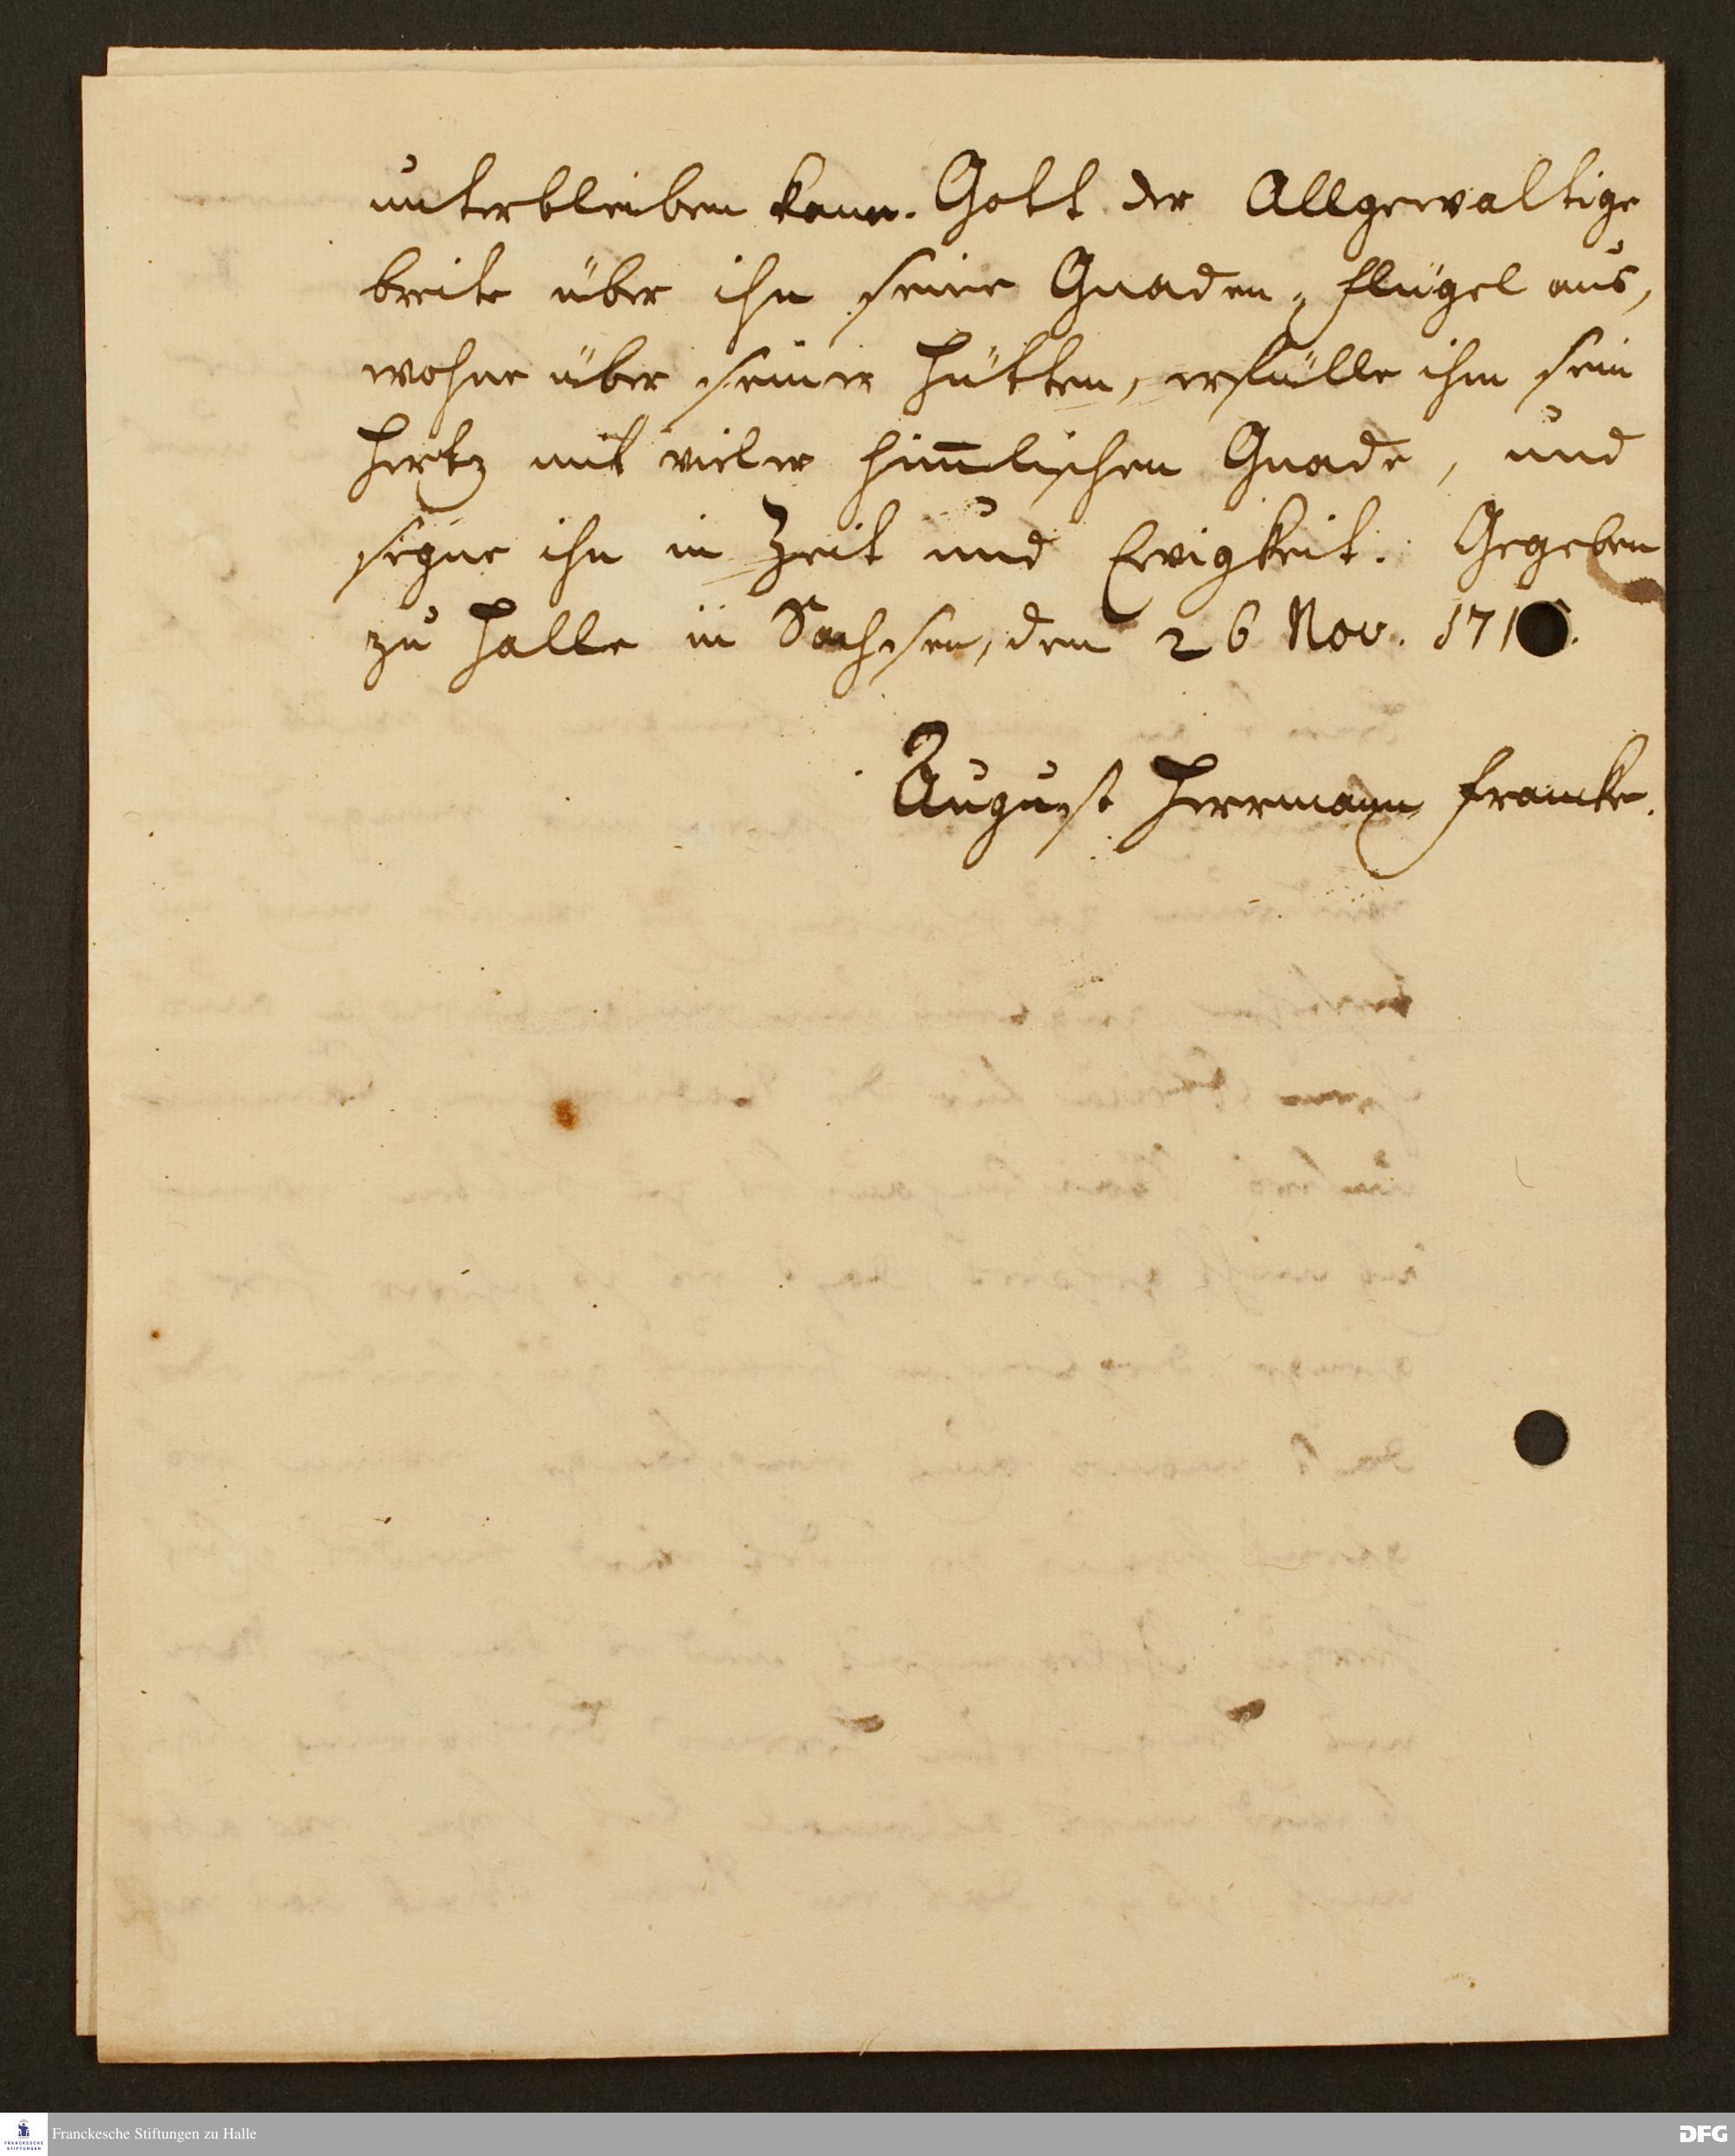 unterbleiben kann. Gott der Allgewaltige
breite über ihn seine Gnaden-flügel aus,
wohne über seiner Hütten, erfülle ihm sein
Hertz mit vieler him̅lischen Gnade, und
segne ihn in Zeit und Ewigkeit. Gegeben
zu Halle in Sachsen, den 26 Nov. 171
August Herrmann Francke.
FRANCKESCHE STIFTUNGEN
Franckesche Stiftungen zu Halle
DFG